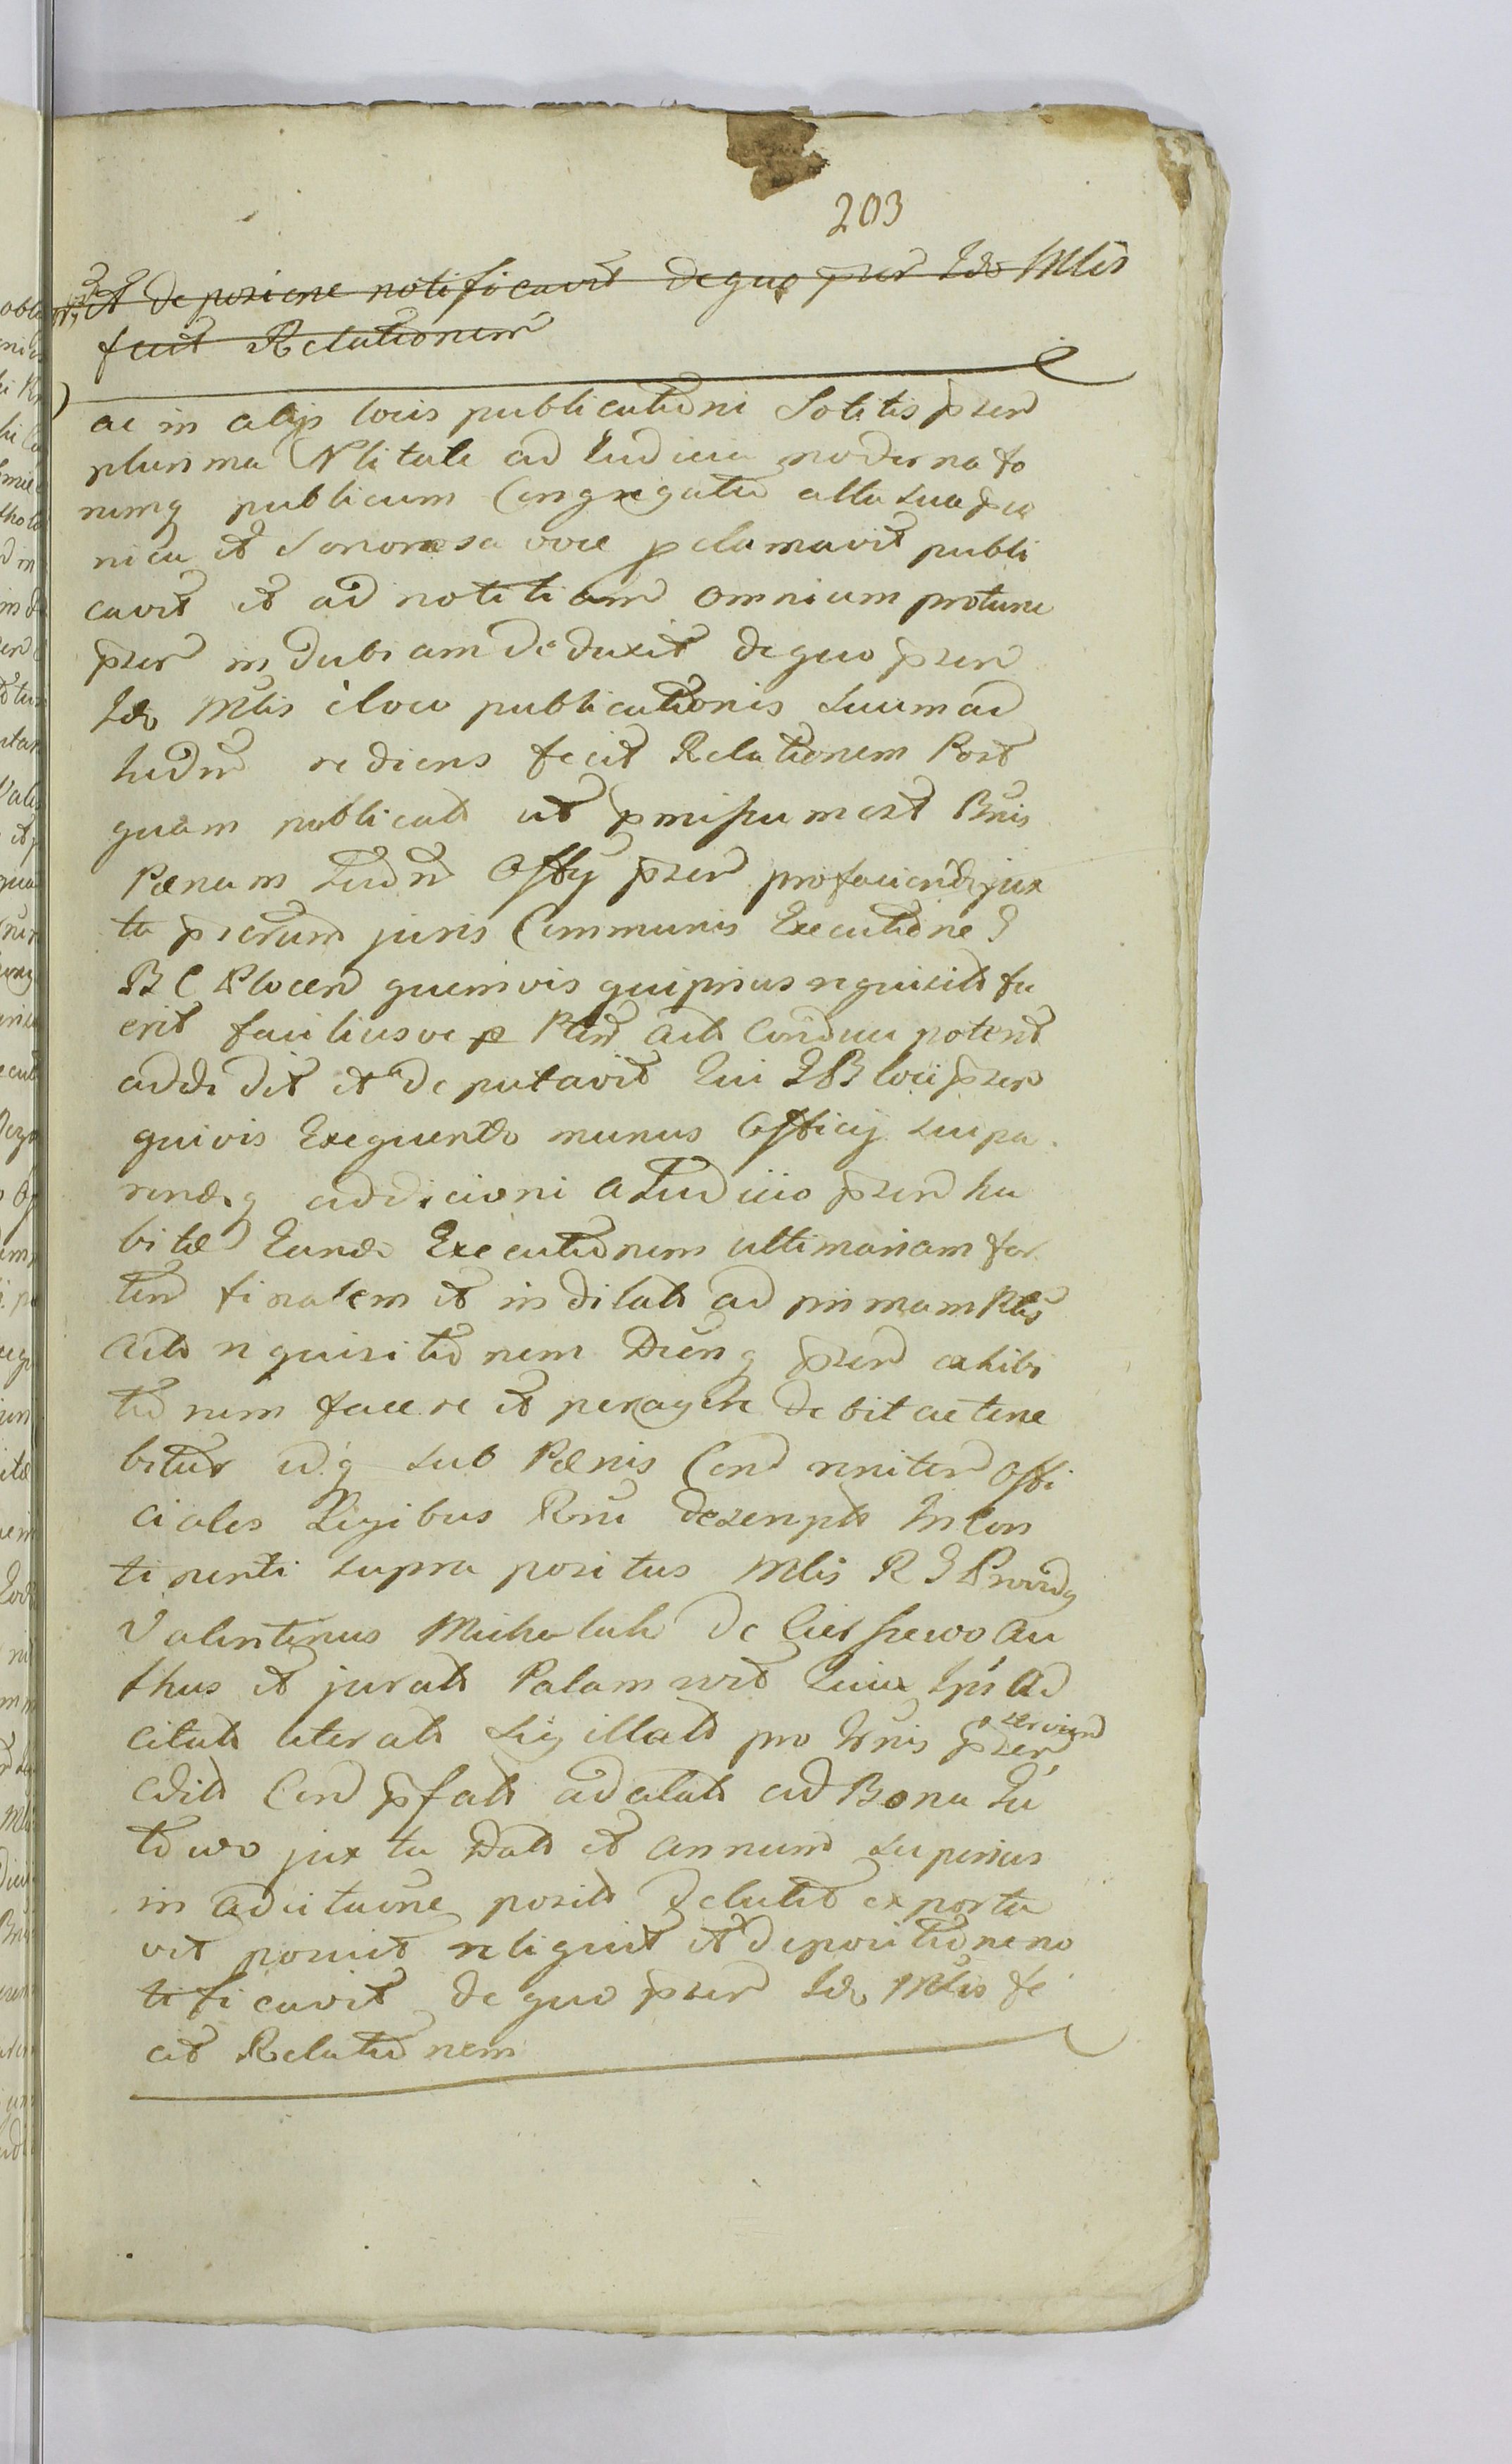 203
et deposicione notificavit de quo pser Ids Mlis
fecit Relationem
ac in alijs locis publicationi Solitis pser
plurima Nlitate ad Iudicia moderna fo
rumq publicum Congregata alta sua
nica et Sonorosa voce pclamavit publi
cavit et ad notitiam omnium protunc
pser indubiam deduxit de quo pser
Ids Mlis é loco publicationis suum ad
Iudm rediens fecit Relationem Post
quam publicats ut pmissum est Bnis
Pænam Iudm Offij pser pro facienda jux
ta pscrum juris Communis Executione
B C Plocen quemvis qui prius requisits fu
erit faciliusve p Ptem Acts Conduci poterit
addidit et deputavit Qui B loci pser
quivis Exequendo munus Officij sui pa
rendq addicioni a Iudicio pser ha
bitæ Eand Executionem ultimariam for
tem finalem et indilats ad primam Ptis
Acts requisitionem pser exhibi
tionem facere et peragere debit ac tene
bitur idq sub Pænis Con reniten Offi
ciales Legibus Rni descripts In Con
tinenti supra positus Mlis R G Providq
Valentinus Michalski de Cieszewo Au
thus et jurats Palam Ipi Ad
citats literats Sigillats pro Trnis pser serviend
edits Con pfats adcitats ad Bona Lu
towo juxta Dats et annum superius
in Adcitaone posits delats exporta
vit posuit reliquit et depositione no
tificavit de quo pser Ids Mlis fe
cit Relationem